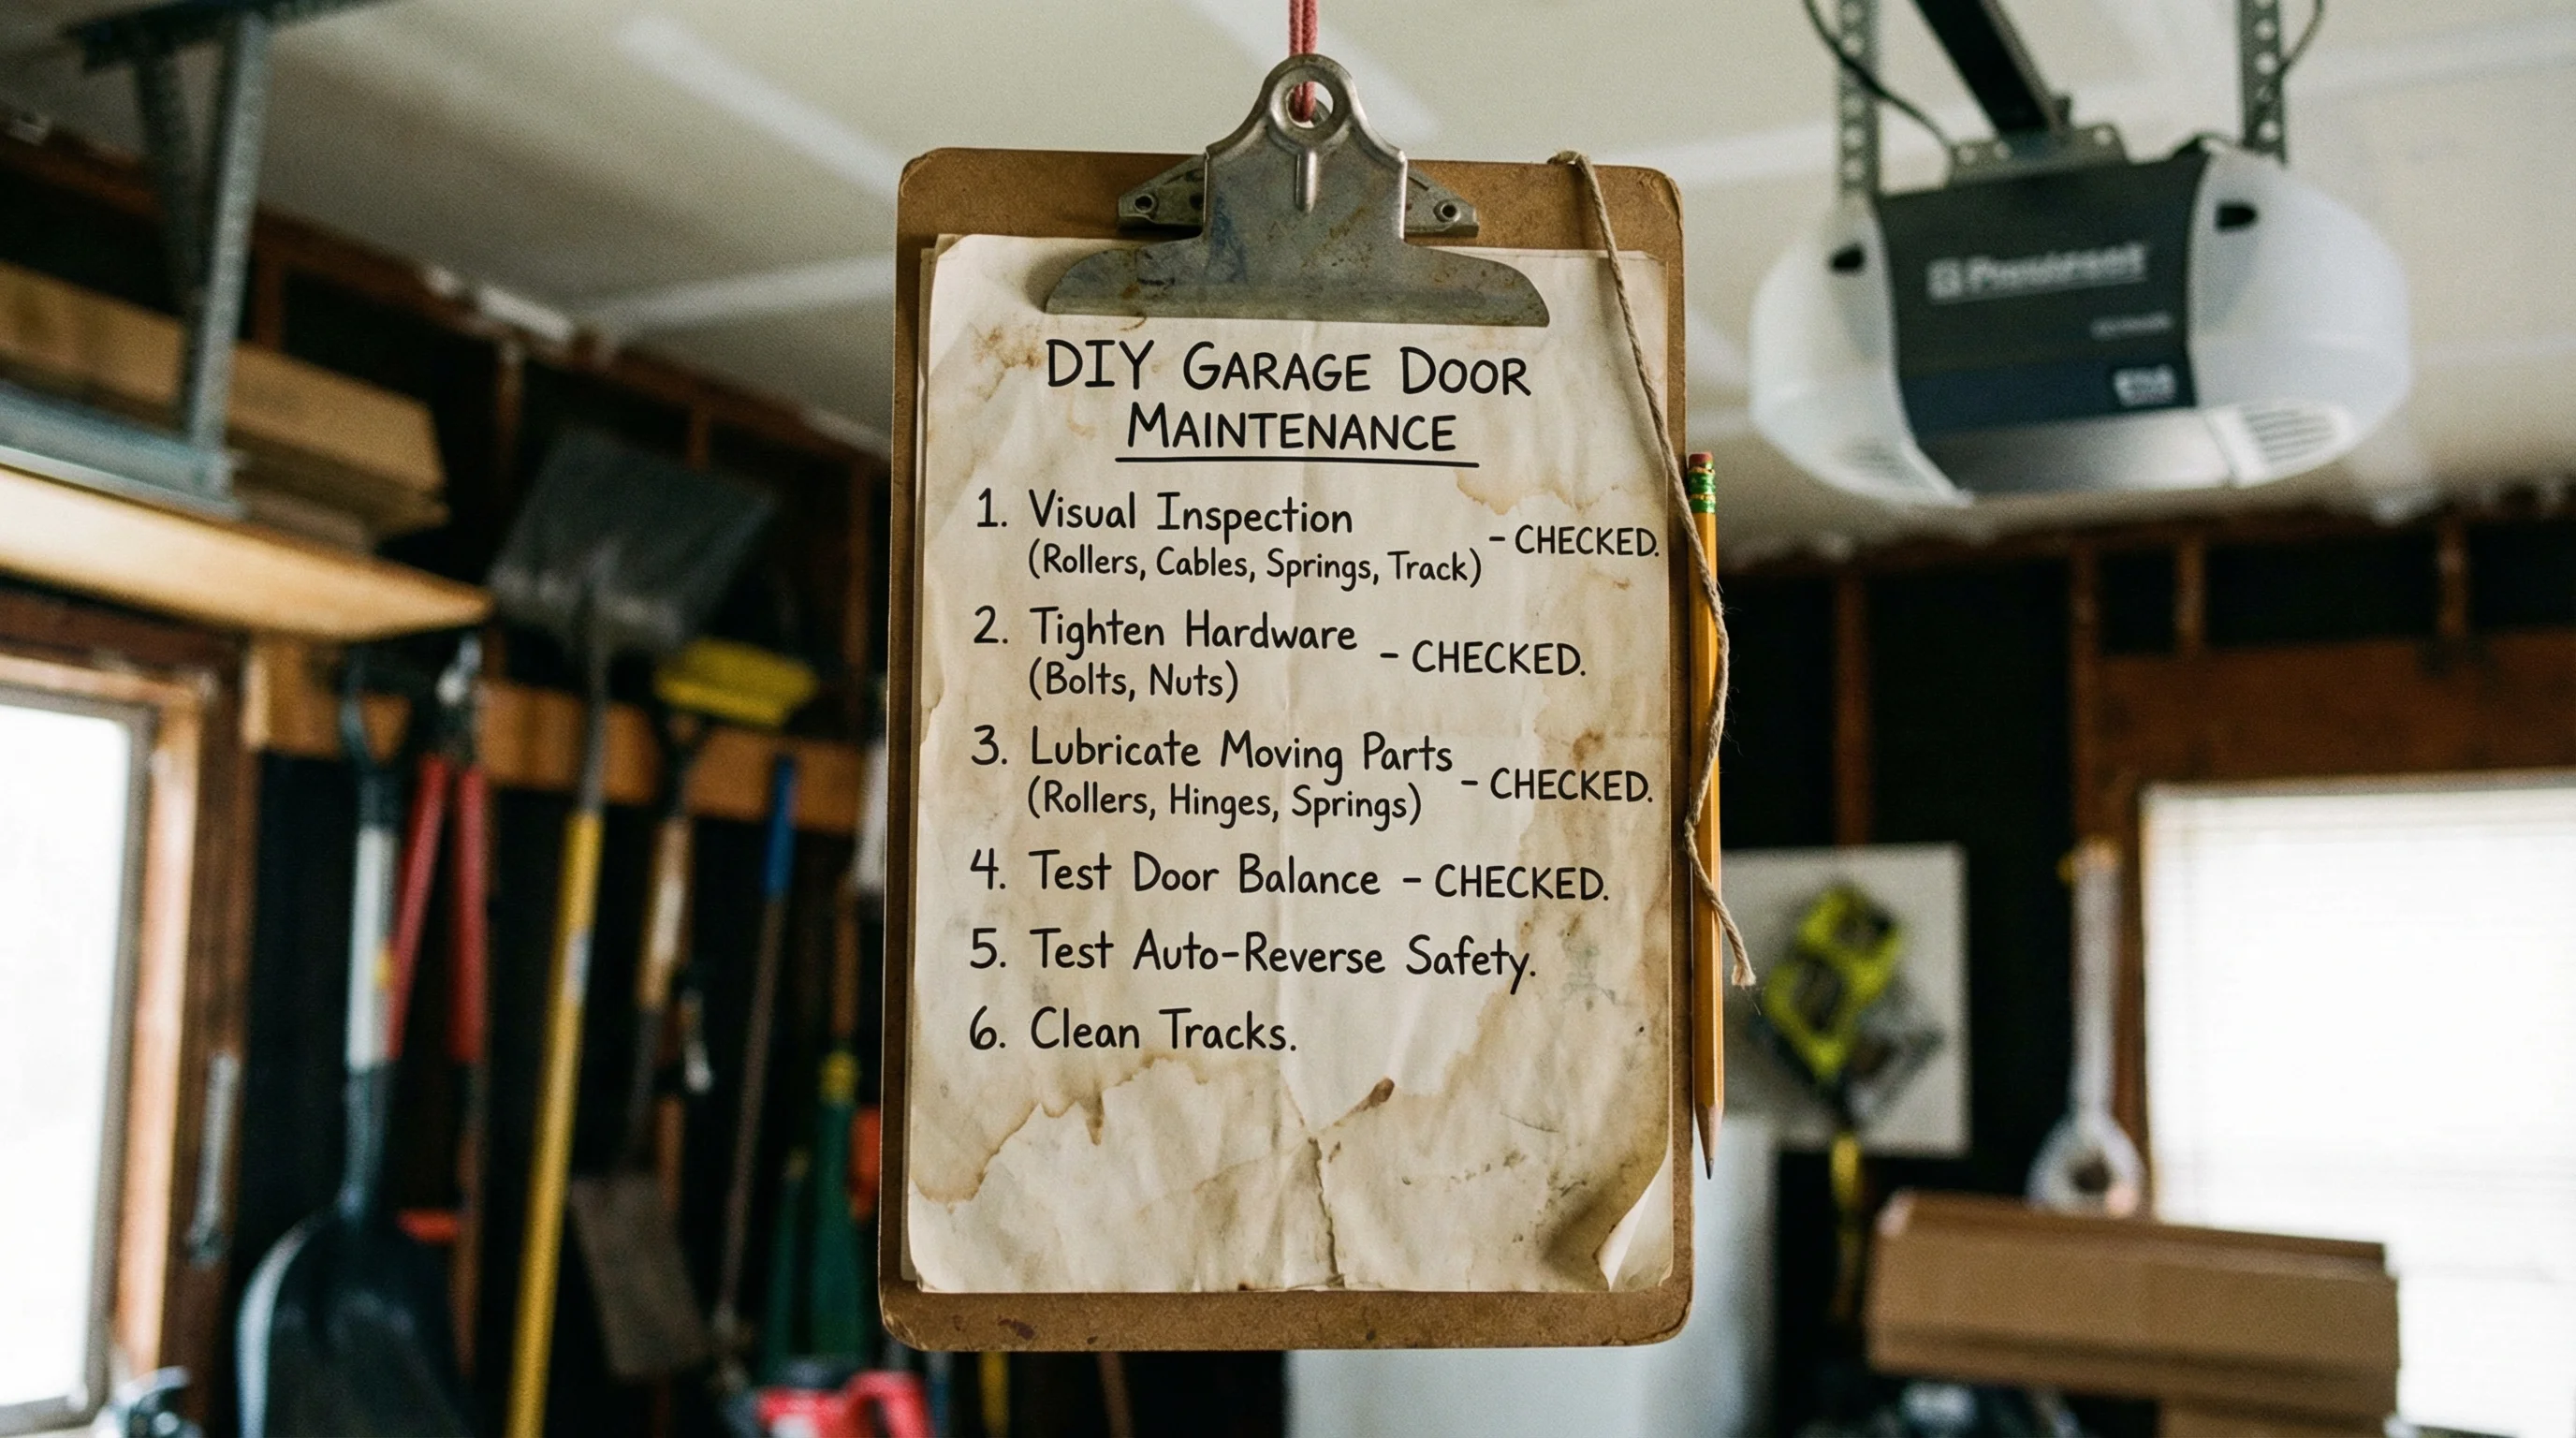 DIY GARAGE DOOR
MAINTENANCE
1. Visual Inspection
(Rollers, Cables, Springs, Track) - CHECKED.
2. Tighten Hardware - CHECKED.
(Bolts, Nuts)
3. Lubricate Moving Parts
(Rollers, Hinges, Springs) - CHECKED.
4. Test Door Balance - CHECKED.
5. Test Auto-Reverse Safety.
6. Clean Tracks.